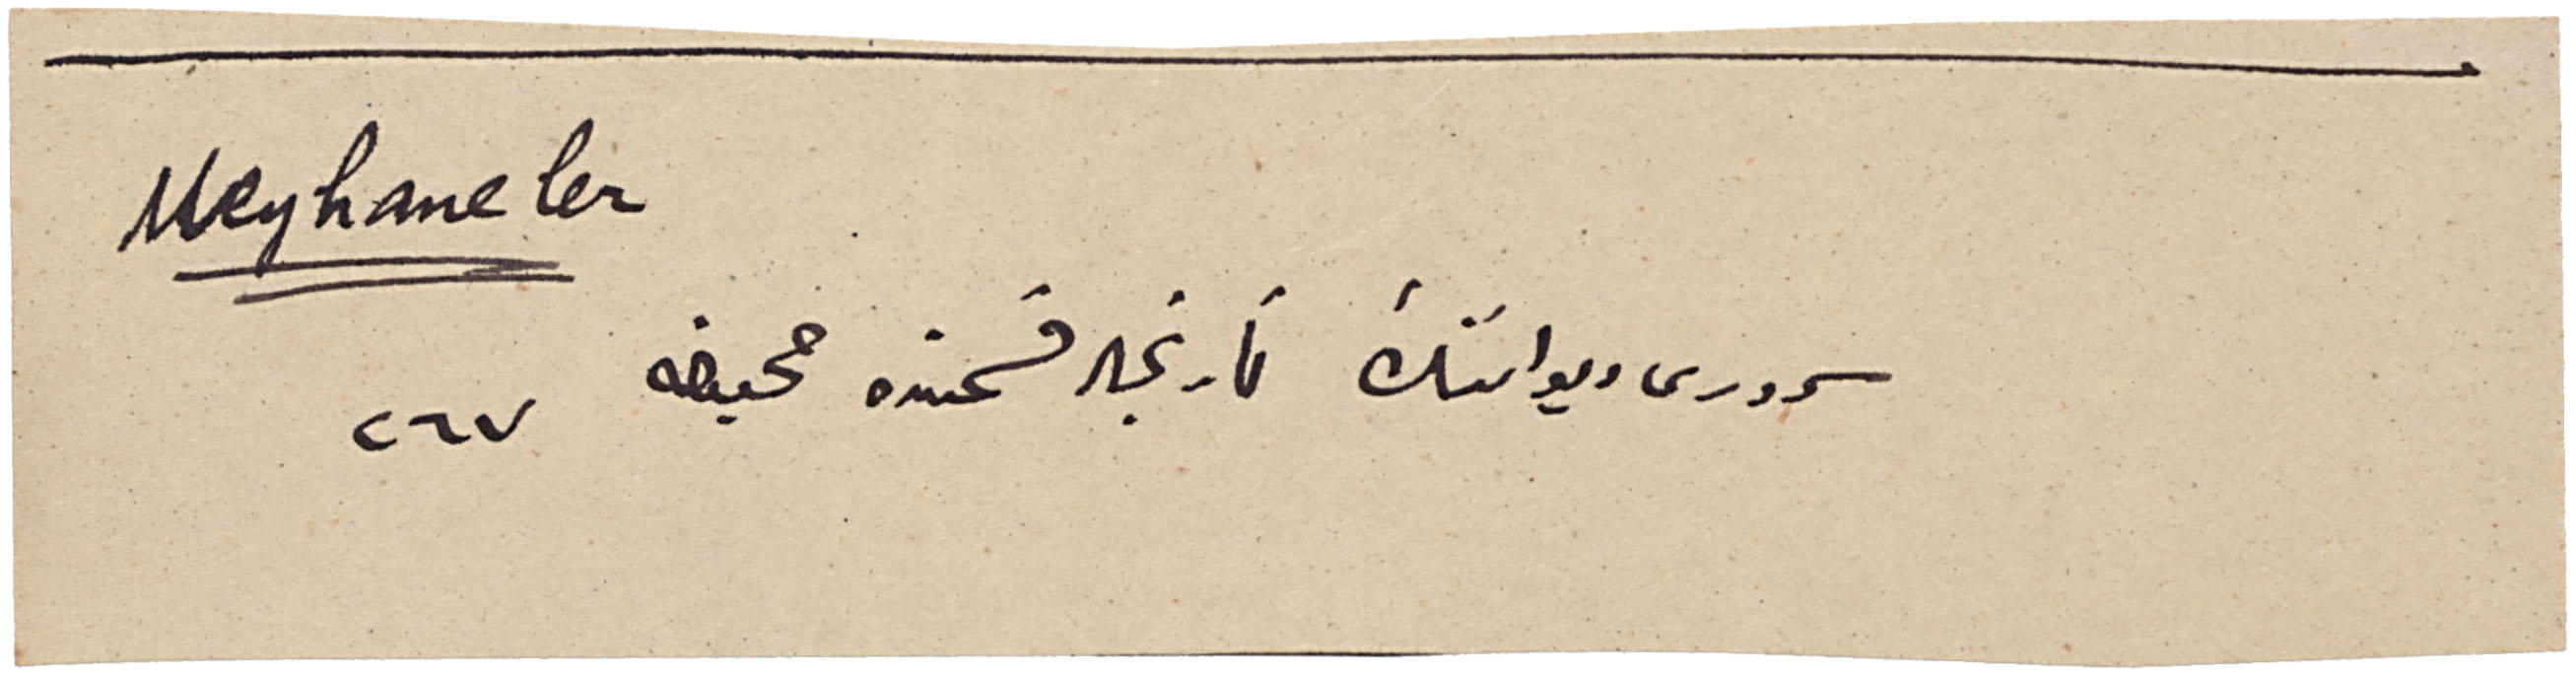 Meyhaneler
سروری دیواننك تاریخلر قسمنده صحیفه
٢٦٧